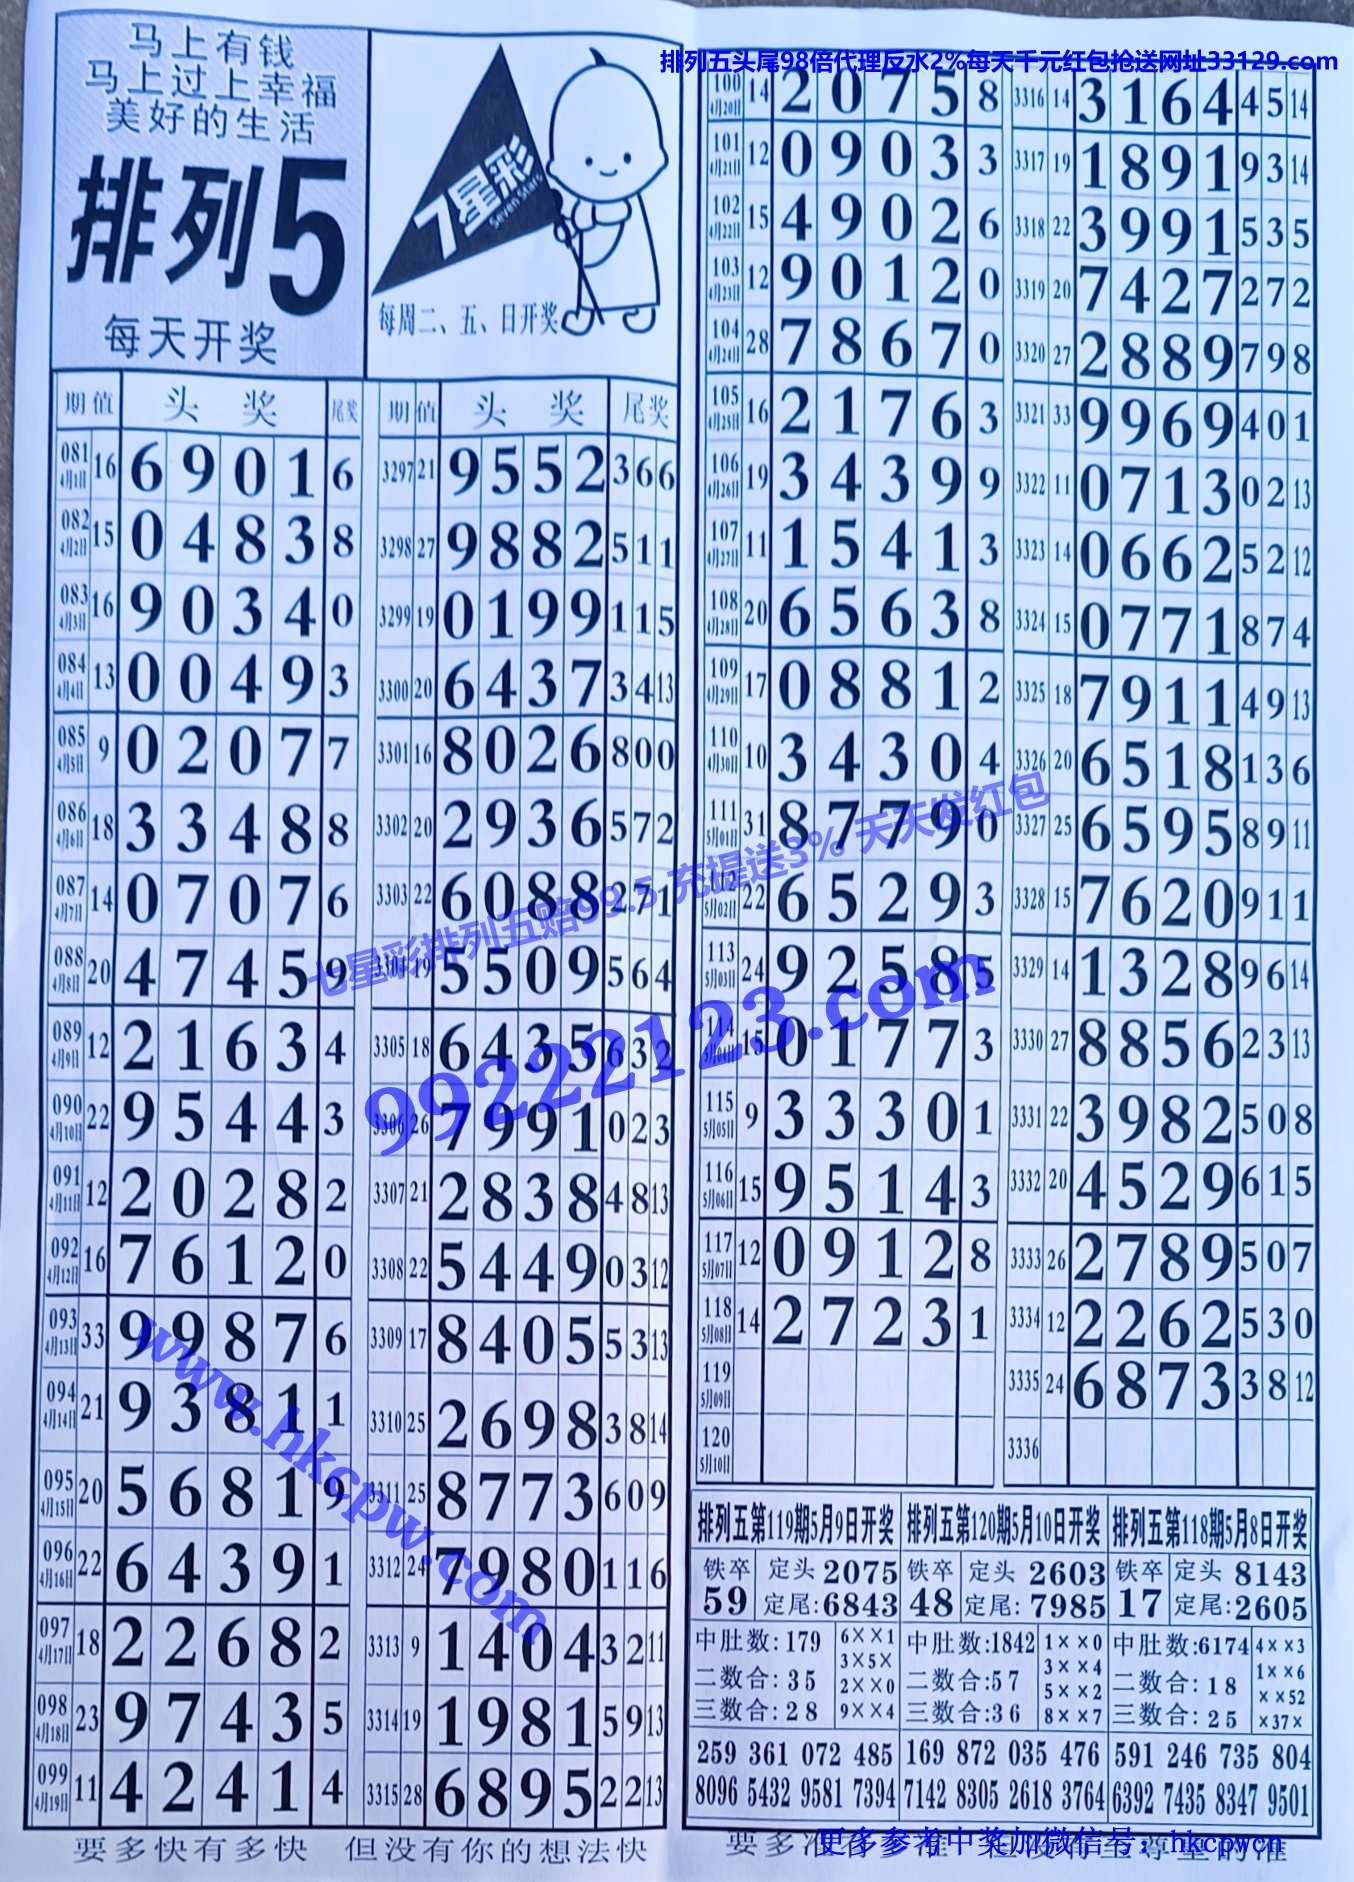 马上有钱
马上过上幸福
美好的生活
排列5
每天开奖
7星彩
Seven Stars
每周二、五、日开奖
排列五头尾98倍代理反水2%每天千元红包抢送网址33129.com
期 值 头奖 尾奖 期 值 头奖 尾奖
081 4月1日 16 6 9 0 1 6 3297 21 9 5 5 2 3 6 6
082 4月2日 15 0 4 8 3 8 3298 27 9 8 8 2 5 1 1
083 4月3日 16 9 0 3 4 0 3299 19 0 1 9 9 1 1 5
084 4月4日 13 0 0 4 9 3 3300 20 6 4 3 7 3 4 13
085 4月5日 9 0 2 0 7 7 3301 16 8 0 2 6 8 0 0
086 4月6日 18 3 3 4 8 8 3302 20 2 9 3 6 5 7 2
087 4月7日 14 0 7 0 7 6 3303 22 6 0 8 8 2 7 1
088 4月8日 20 4 7 4 5 9 3304 19 5 5 0 9 5 6 4
089 4月9日 12 2 1 6 3 4 3305 18 6 4 3 5 6 3 2
090 4月10日 22 9 5 4 4 3 3306 26 7 9 9 1 0 2 3
091 4月11日 12 2 0 2 8 2 3307 21 2 8 3 8 4 8 13
092 4月12日 16 7 6 1 2 0 3308 22 5 4 4 9 0 3 12
093 4月13日 33 9 9 8 7 6 3309 17 8 4 0 5 5 3 13
094 4月14日 21 9 3 8 1 1 3310 25 2 6 9 8 3 8 14
095 4月15日 20 5 6 8 1 9 3311 25 8 7 7 3 6 0 9
096 4月16日 22 6 4 3 9 1 3312 24 7 9 8 0 1 1 6
097 4月17日 18 2 2 6 8 2 3313 9 1 4 0 4 3 2 11
098 4月18日 23 9 7 4 3 5 3314 19 1 9 8 1 5 9 13
099 4月19日 11 4 2 4 1 4 3315 28 6 8 9 5 2 2 13
100 4月20日 14 2 0 7 5 8 3316 14 3 1 6 4 4 5 14
101 4月21日 12 0 9 0 3 3 3317 19 1 8 9 1 9 3 14
102 4月22日 15 4 9 0 2 6 3318 22 3 9 9 1 5 3 5
103 4月23日 12 9 0 1 2 0 3319 20 7 4 2 7 2 7 2
104 4月24日 28 7 8 6 7 0 3320 27 2 8 8 9 7 9 8
105 4月25日 16 2 1 7 6 3 3321 33 9 9 6 9 4 0 1
106 4月26日 19 3 4 3 9 9 3322 11 0 7 1 3 0 2 13
107 4月27日 11 1 5 4 1 3 3323 14 0 6 6 2 5 2 12
108 4月28日 20 6 5 6 3 8 3324 15 0 7 7 1 8 7 4
109 4月29日 17 0 8 8 1 2 3325 18 7 9 1 1 4 9 13
110 4月30日 10 3 4 3 0 4 3326 20 6 5 1 8 1 3 6
111 5月01日 31 8 7 7 9 3327 25 6 5 9 5 8 9 11
5月02日 22 6 5 2 9 3 3328 15 7 6 2 0 9 1 1
113 5月03日 24 9 2 5 8 5 3329 14 1 3 2 8 9 6 14
114 5月04日 15 0 1 7 7 3 3330 27 8 8 5 6 2 3 13
115 5月05日 9 3 3 3 0 1 3331 22 3 9 8 2 5 0 8
116 5月06日 15 9 5 1 4 3 3332 20 4 5 2 9 6 1 5
117 5月07日 12 0 9 1 2 8 3333 26 2 7 8 9 5 0 7
118 5月08日 14 2 7 2 3 1 3334 12 2 2 6 2 5 3 0
119 5月09日 3335 24 6 8 7 3 3 8 12
120 5月10日 3336
七星彩排列五赔99.5 充提送3% 天天发红包
99222123.com
www.hkcpw.com
排列五第119期5月9日开奖
铁卒 59 定头 2075
定尾:6843
中肚数:179
二数合:35
三数合:28
6××1
3×5×
2××0
9××4
259 361 072 485
8096 5432 9581 7394
排列五第120期5月10日开奖
铁卒 48 定头 2603
定尾:7985
中肚数:1842
二数合:57
三数合:36
1××0
3××4
5××2
8××7
169 872 035 476
7142 8305 2618 3764
排列五第118期5月8日开奖
铁卒 17 定头 8143
定尾:2605
中肚数:6174
二数合:18
三数合:25
4××3
1××6
××52
×37×
591 246 735 804
6392 7435 8347 9501
要多快有多快 但没有你的想法快
更多参考中奖加微信号：hkcpwcn